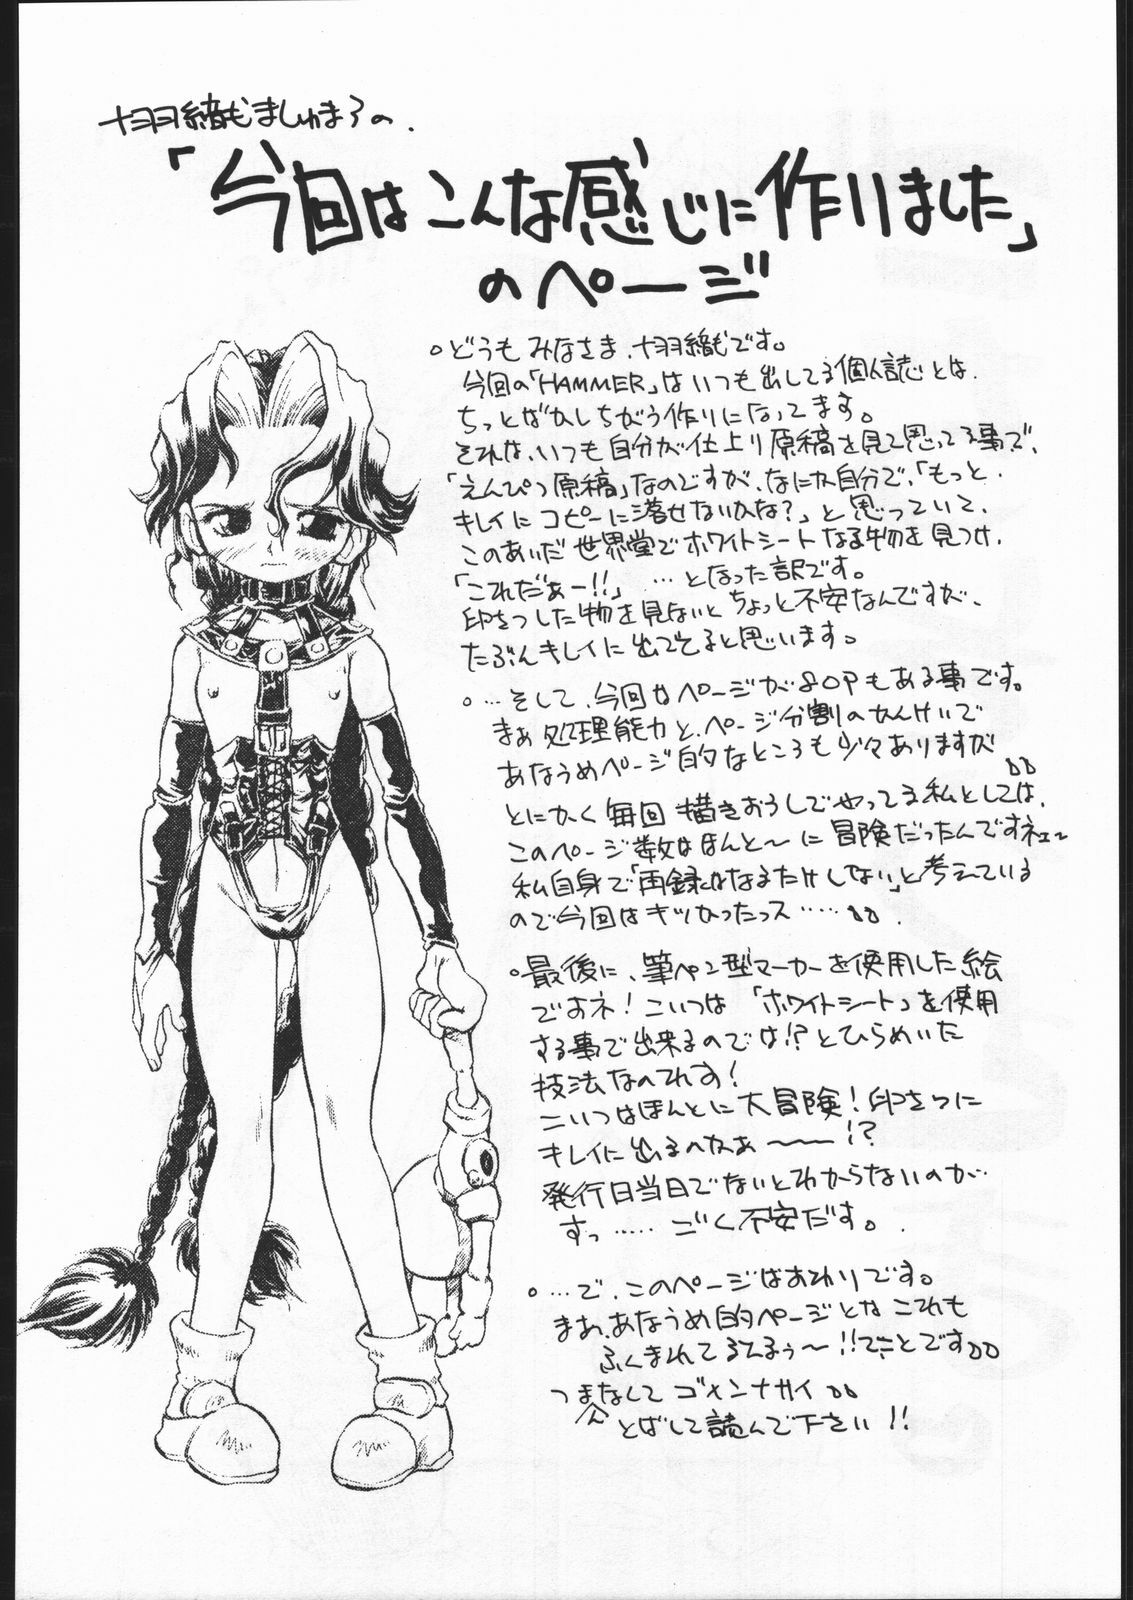 もましゅまろの、
「今回はこんな感じに作りました」
のページ
どうもみなさま、です。
今回の「HAMMER」はいつも出してる個人誌とは、
ちっとばかしちがう作りになってます。
それは、いつも自分が仕上り原稿を見て思ってる事で、
「えんぴつ原稿」なのですが、なにか自分で、「もっと、
キレイにコピーに落せないかな?」と思っていて、
このあいだ世界堂でホワイトシートなる物を見つけ、
「これだぁー!!」…となった訳です。
印さつした物を見ないとちょっと不安なんですが、
たぶんキレイに出てると思います。
…そして、今回はページが80Pもある事です。
まぁ処理能力と、ページ分割のかんけいで
あなうめページ的なところも少々ありますが
とにかく毎回描きおろしでやってる私としては、
このページ数はほんと〜に冒険だったんですネェ〜
私自身で「再録はなるたけしない」と考えている
ので今回はキツかったっス……。
最後に、筆ペン型マーカーを使用した絵
ですネ!こいつは「ホワイトシート」を使用
する事で出来るのでは!?とひらめいた
技法なのです!
こいつはほんとに大冒険!印さつに
キレイに出るのかなぁ〜〜!?
発行日当日でないとわからないのが…
すっ……ごく不安だす。
…で、このページはおわりです。
まぁ、あなうめ的ページとはこれも
ふくまれてるてるぅ〜!!てことです
つまんなくてゴメンナサイ
とばして読んで下さい!!